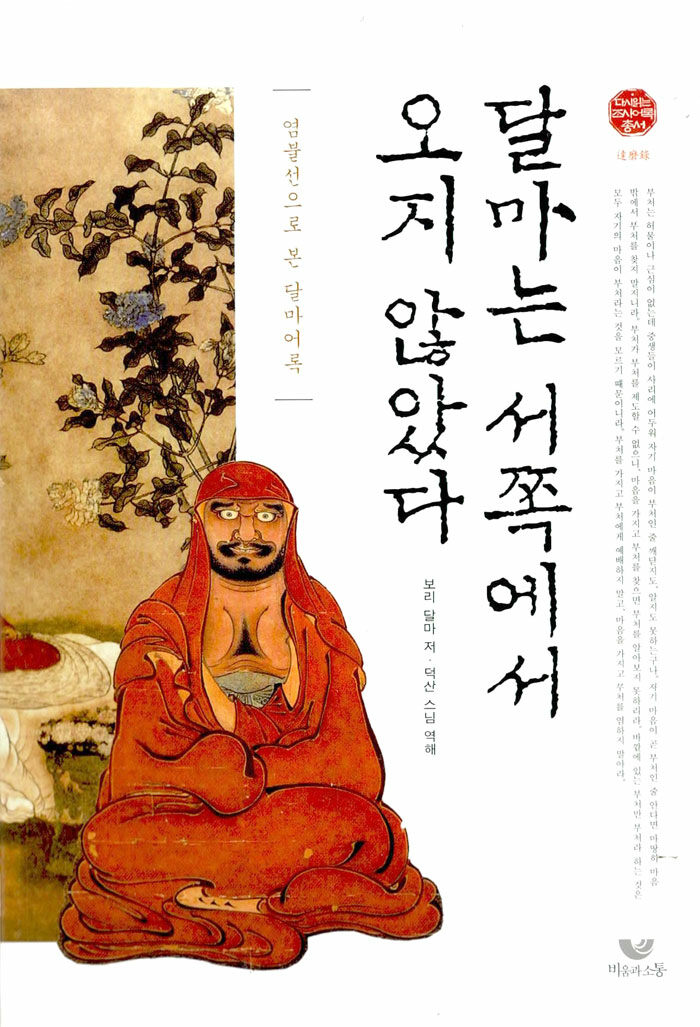 다시읽는
조사어록
총서
達磨錄
부처는 허물이나 근심이 없는데 중생들이 사리에 어두워 자기 마음이 부처인 줄 깨닫지도, 알지도 못하는구나. 자기 마음이 곧 부처인 줄 안다면 마땅히 마음
밖에서 부처를 찾지 말지니라. 부처가 부처를 제도할 수 없으니, 마음을 가지고 부처를 찾으면 부처를 알아보지 못하리라. 바깥에 있는 부처만 부처라 하는 것은
모두 자기의 마음이 부처라는 것을 모르기 때문이니라. 부처를 가지고 부처에게 예배하지 말고, 마음을 가지고 부처를 염하지 말아라.
달마는 서쪽에서
오지 않았다
보리 달마 저 · 덕산 스님 역해
염불선으로 본 달마어록
비움과소통